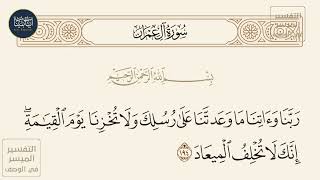 سُورَةُ آلِ عِمْرَان
التفسير
الميسر
بِسْمِ اللَّهِ الرَّحْمَٰنِ الرَّحِيمِ
رَبَّنَا وَءَاتِنَا مَا وَعَدتَّنَا عَلَىٰ رُسُلِكَ وَلَا تُخْزِنَا يَوْمَ ٱلْقِيَٰمَةِۖ
إِنَّكَ لَا تُخْلِفُ ٱلْمِيعَادَ ١٩٤
التفسير
الميسر
في الوصف